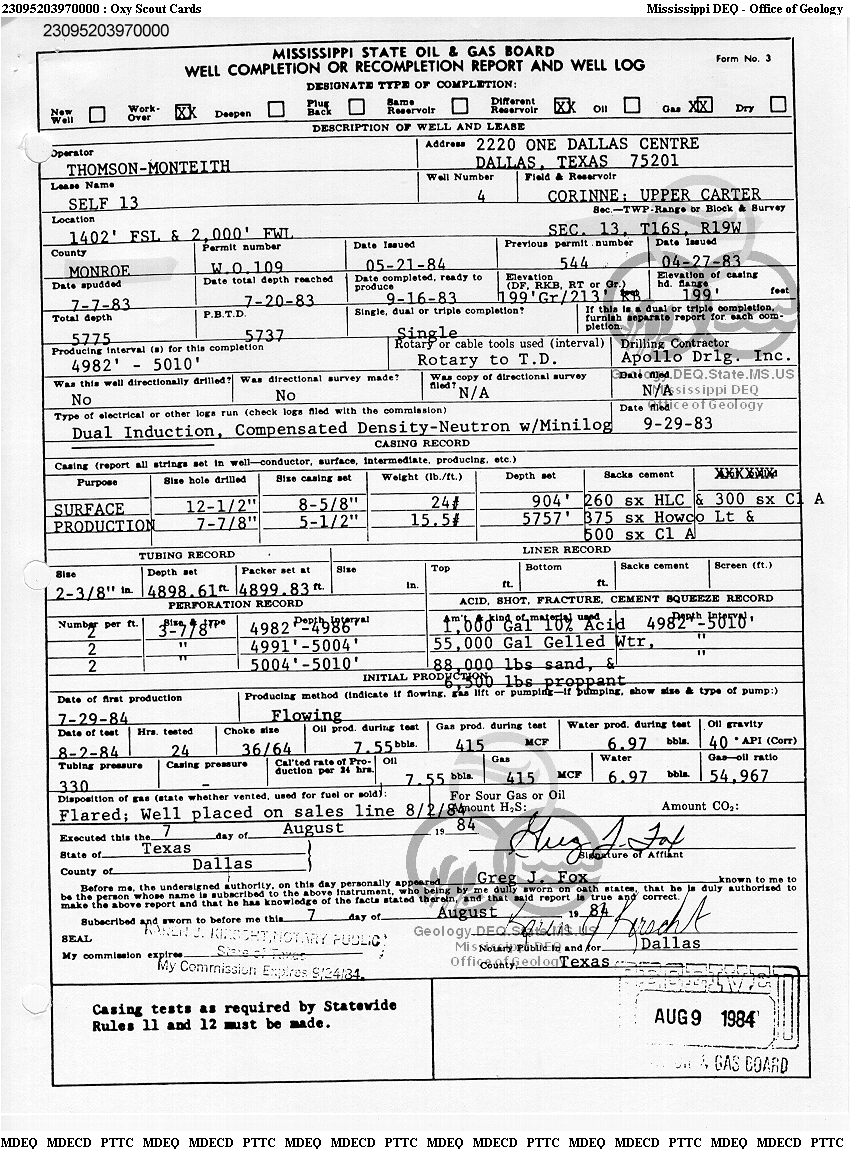 23095203970000 : Oxy Scout Cards Mississippi DEQ - Office of Geology
23095203970000
MISSISSIPPI STATE OIL & GAS BOARD
WELL COMPLETION OR RECOMPLETION REPORT AND WELL LOG Form No. 3
DESIGNATE TYPE OF COMPLETION:
New Well Work-Over XX Deepen Plug Back Same Reservoir Different Reservoir XX Oil Gas XX Dry
DESCRIPTION OF WELL AND LEASE
Operator Address 2220 ONE DALLAS CENTRE
THOMSON-MONTEITH DALLAS, TEXAS 75201
Lease Name Well Number Field & Reservoir
SELF 13 4 CORINNE: UPPER CARTER
Location Sec.—TWP-Range or Block & Survey
1402' FSL & 2,000' FWL SEC. 13, T16S, R19W
County Permit number Date Issued Previous permit number Date Issued
MONROE W.O.109 05-21-84 544 04-27-83
Date spudded Date total depth reached Date completed, ready to produce Elevation (DF, RKB, RT or Gr.) Elevation of casing hd. flange
7-7-83 7-20-83 9-16-83 199'Gr/213' KB 199' feet
Total depth P.B.T.D. Single, dual or triple completion? If this is a dual or triple completion, furnish separate report for each completion.
5775 5737 Single
Producing interval (s) for this completion Rotary or cable tools used (interval) Drilling Contractor
4982' - 5010' Rotary to T.D. Apollo Drlg. Inc.
Geology.DEQ.State.MS.US
Mississippi DEQ
Office of Geology
Was this well directionally drilled? Was directional survey made? Was copy of directional survey filed? Date filed
No No N/A N/A
Type of electrical or other logs run (check logs filed with the commission) Date filed
Dual Induction, Compensated Density-Neutron w/Minilog 9-29-83
CASING RECORD
Casing (report all strings set in well—conductor, surface, intermediate, producing, etc.)
Purpose Size hole drilled Size casing set Weight (lb./ft.) Depth set Sacks cement
SURFACE 12-1/2" 8-5/8" 24# 904' 260 sx HLC & 300 sx Cl A
PRODUCTION 7-7/8" 5-1/2" 15.5# 5757' 375 sx Howco Lt &
500 sx Cl A
TUBING RECORD LINER RECORD
Size Depth set Packer set at Size Top Bottom Sacks cement Screen (ft.)
2-3/8" in. 4898.61 ft. 4899.83 ft. in. ft. ft.
PERFORATION RECORD ACID, SHOT, FRACTURE, CEMENT SQUEEZE RECORD
Number per ft. Size & type Depth Interval Am't & kind of material used Depth Interval
2 3-7/8" 4982'-4986' 1,000 Gal 10% Acid 4982'-5010'
2 " 4991'-5004' 55,000 Gal Gelled Wtr, "
2 " 5004'-5010' 88,000 lbs sand, & "
INITIAL PRODUCTION 6,500 lbs proppant
Date of first production Producing method (indicate if flowing, gas lift or pumping—if pumping, show size & type of pump:)
7-29-84 Flowing
Date of test Hrs. tested Choke size Oil prod. during test Gas prod. during test Water prod. during test Oil gravity
8-2-84 24 36/64 7.55 bbls. 415 MCF 6.97 bbls. 40 ° API (Corr)
Tubing pressure Casing pressure Cal'ted rate of Production per 24 hrs. Oil Gas Water Gas—oil ratio
330 - 7.55 bbls. 415 MCF 6.97 bbls. 54,967
Disposition of gas (state whether vented, used for fuel or sold): For Sour Gas or Oil
Flared; Well placed on sales line 8/2/84 Amount H₂S: Amount CO₂:
Executed this the 7 day of August 19 84 Greg J. Fox
State of Texas Signature of Affiant
County of Dallas
Before me, the undersigned authority, on this day personally appeared Greg J. Fox known to me to
be the person whose name is subscribed to the above instrument, who being by me duly sworn on oath states, that he is duly authorized to
make the above report and that he has knowledge of the facts stated therein, and that said report is true and correct.
Subscribed and sworn to before me this 7 day of August 19 84
Geology.DEQ.State.MS.US
SEAL KAREN J. KIRSCHT, NOTARY PUBLIC Mississippi DEQ Notary Public in and for Dallas
My commission expires State of Texas Office of Geology
My Commission Expires 9/24/84. County, Texas
Casing tests as required by Statewide
Rules 11 and 12 must be made.
RECEIVED
AUG 9 1984
OIL & GAS BOARD
MDEQ MDECD PTTC MDEQ MDECD PTTC MDEQ MDECD PTTC MDEQ MDECD PTTC MDEQ MDECD PTTC MDEQ MDECD PTTC